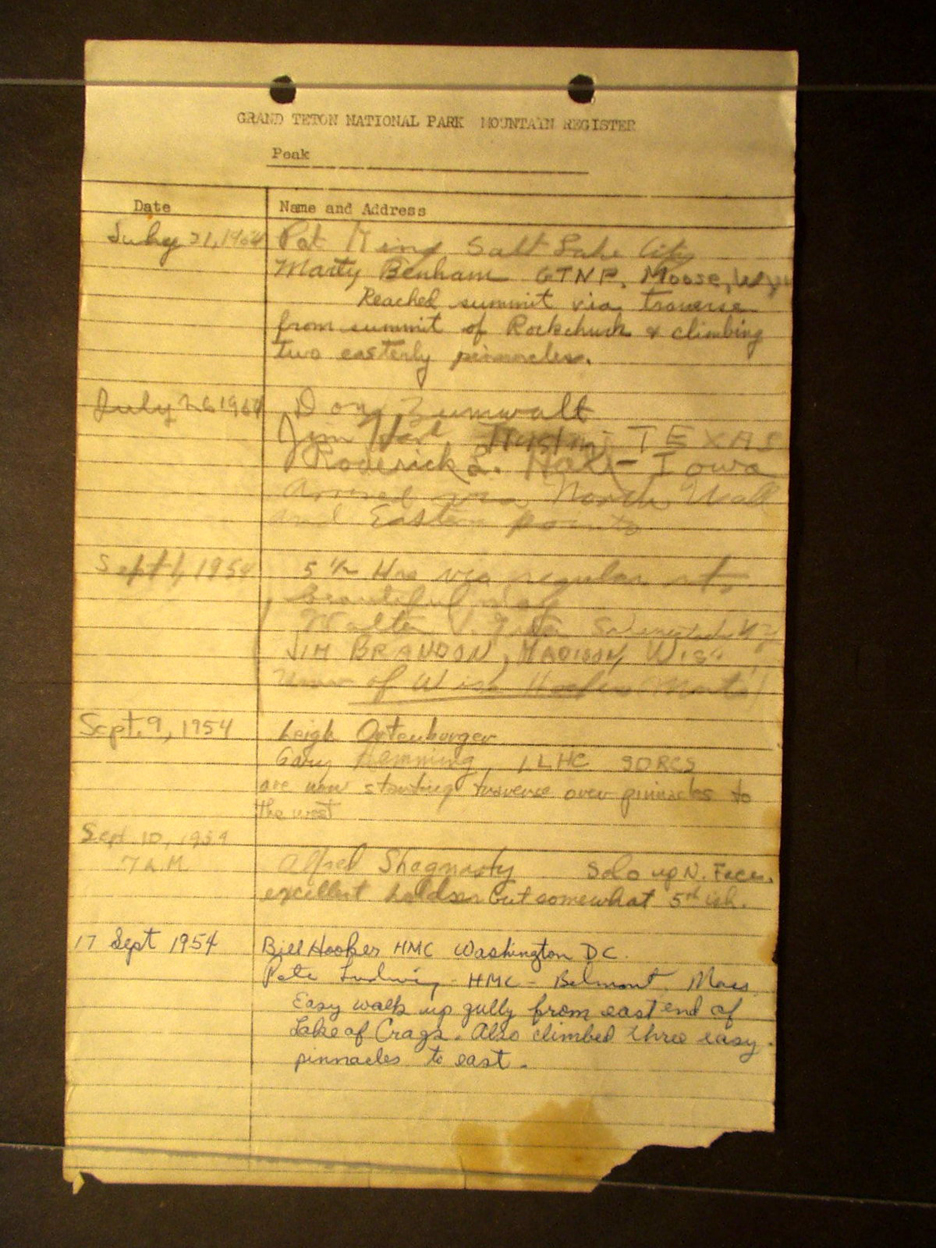 GRAND TETON NATIONAL PARK MOUNTAIN REGISTER
Peak
Date Name and Address
July 21, 1954 Pat King Salt Lake City
Marty Benham GTNP, Moose, Wyo
Reached summit via traverse
from summit of Rockchuck & climbing
two easterly pinnacles.
July 26 1954 Don Zumwalt
Jim Hart TEXAS
Roderick L. Hart - Iowa
Arrived via North Wall
and Eastern points
Sept 1, 1954 5 1/2 Hrs via regular rt,
beautiful day
Walter Schenectady NY
JIM BRANDON, MADISON, WIS.
Univ of Wisc Hoofers
Sept. 9, 1954 Leigh Ortenburger
Gary Hemming, LHC SDRCS
are now starting traverse over pinnacles to
the west
Sept. 10, 1954
7 A.M Alfred Shagnasty Solo up N. Face.
excellent holds but somewhat 5th ish.
17 Sept 1954 Bill Hooker HMC Washington DC.
Pete Ludwig - HMC - Belmont, Mass.
Easy walk up gully from east end of
Lake of Crags. Also climbed three easy
pinnacles to east.